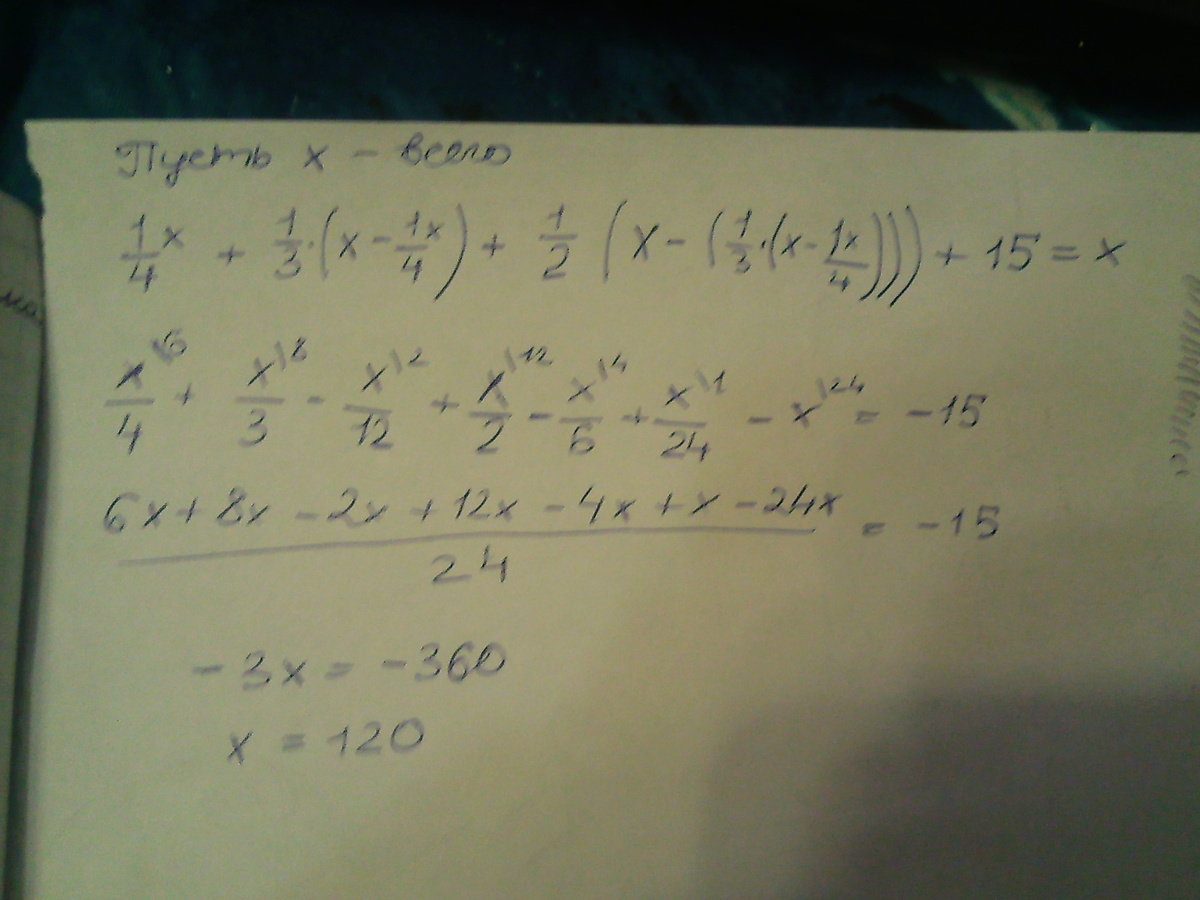 Пусть x - всего
1/4 x + 1/3·(x - 1x/4) + 1/2 (x - (1/3·(x - 1x/4))) + 15 = x
x/4 \6 + x/3 \8 - x/12 \2 + x/2 \12 - x/6 \4 + x/24 \1 - x \24 = -15
(6x + 8x - 2x + 12x - 4x + x - 24x)/24 = -15
-3x = -360
x = 120